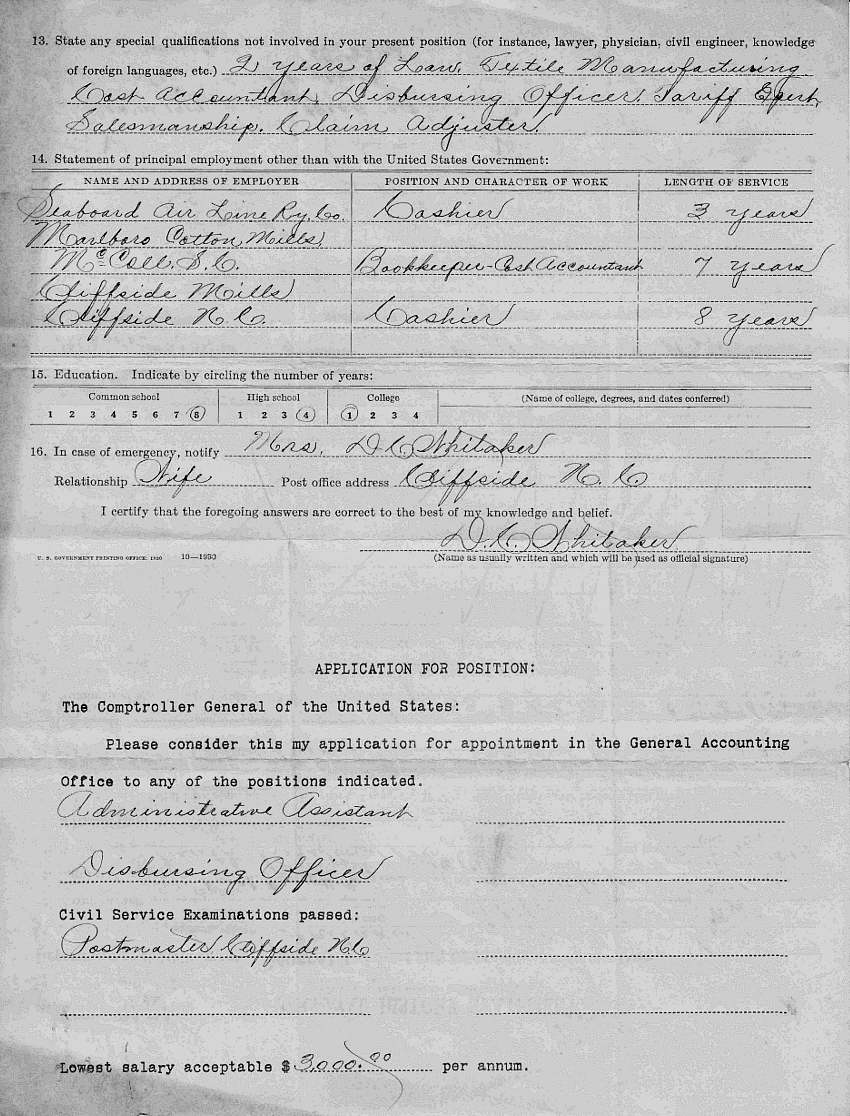 13. State any special qualifications not involved in your present position (for instance, lawyer, physician, civil engineer, knowledge
of foreign languages, etc.) 2 years of Law. Textile Manufacturing
Cost Accountant, Disbursing Officer. Tariff Expert,
Salesmanship. Claim Adjuster.
14. Statement of principal employment other than with the United States Government:
NAME AND ADDRESS OF EMPLOYER POSITION AND CHARACTER OF WORK LENGTH OF SERVICE
Seaboard Air Line Ry. Co. Cashier 3 years
Marlboro Cotton Mills,
McColl. S.C. Bookkeeper-Cost Accountant 7 years
Cliffside Mills
Cliffside N.C. Cashier 8 years
15. Education. Indicate by circling the number of years:
Common school High school College (Name of college, degrees, and dates conferred)
1 2 3 4 5 6 7 8 1 2 3 4 1 2 3 4
16. In case of emergency, notify Mrs. D C Whitaker
Relationship Wife Post office address Cliffside N.C
I certify that the foregoing answers are correct to the best of my knowledge and belief.
D.C. Whitaker
U. S. GOVERNMENT PRINTING OFFICE: 1930 10—1930
(Name as usually written and which will be used as official signature)
APPLICATION FOR POSITION:
The Comptroller General of the United States:
Please consider this my application for appointment in the General Accounting
Office to any of the positions indicated.
Administrative Assistant
Disbursing Officer
Civil Service Examinations passed:
Postmaster Cliffside N.C
Lowest salary acceptable $ 3,000.00 per annum.